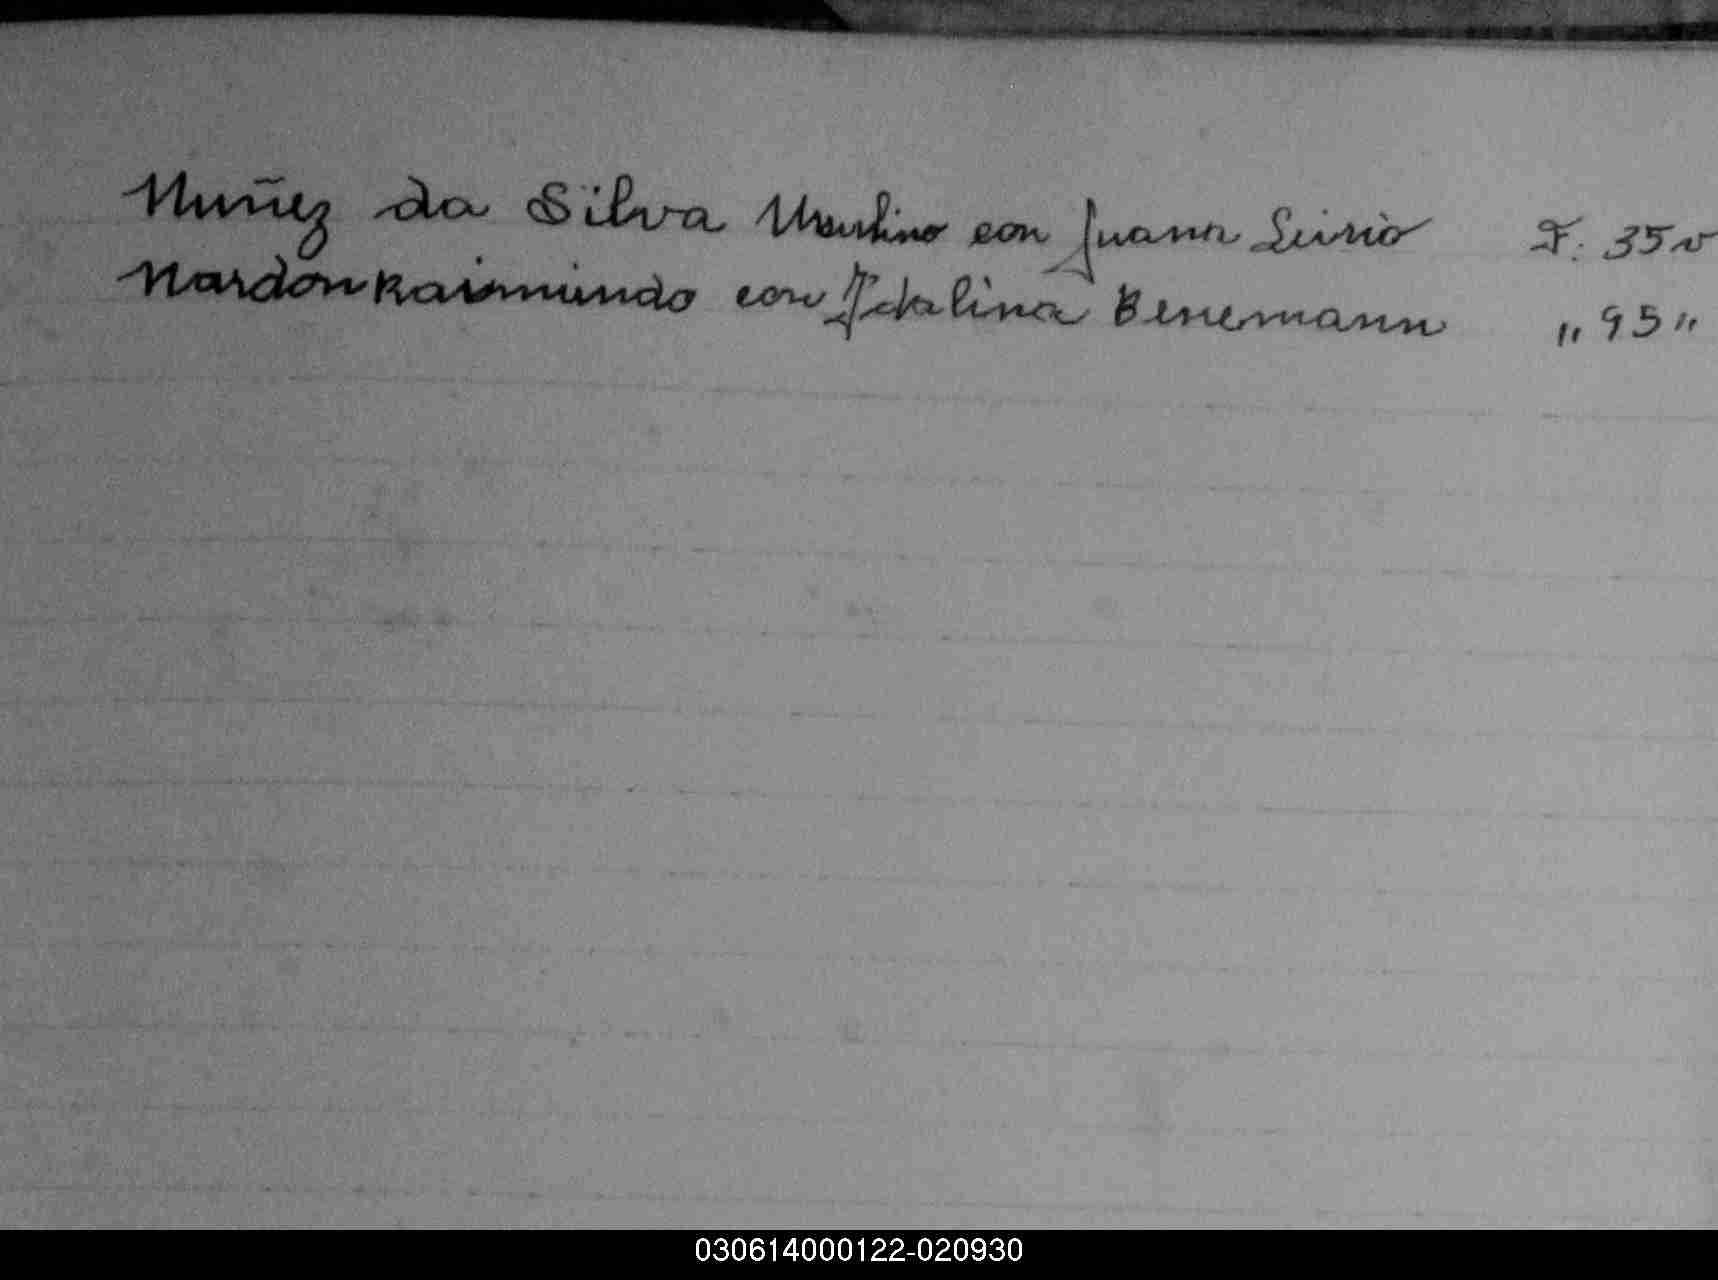 Nuñez da Silva con Juana F. 35 v
Nardon Raimundo con Idalina Benemann " 95 "
030614000122-020930